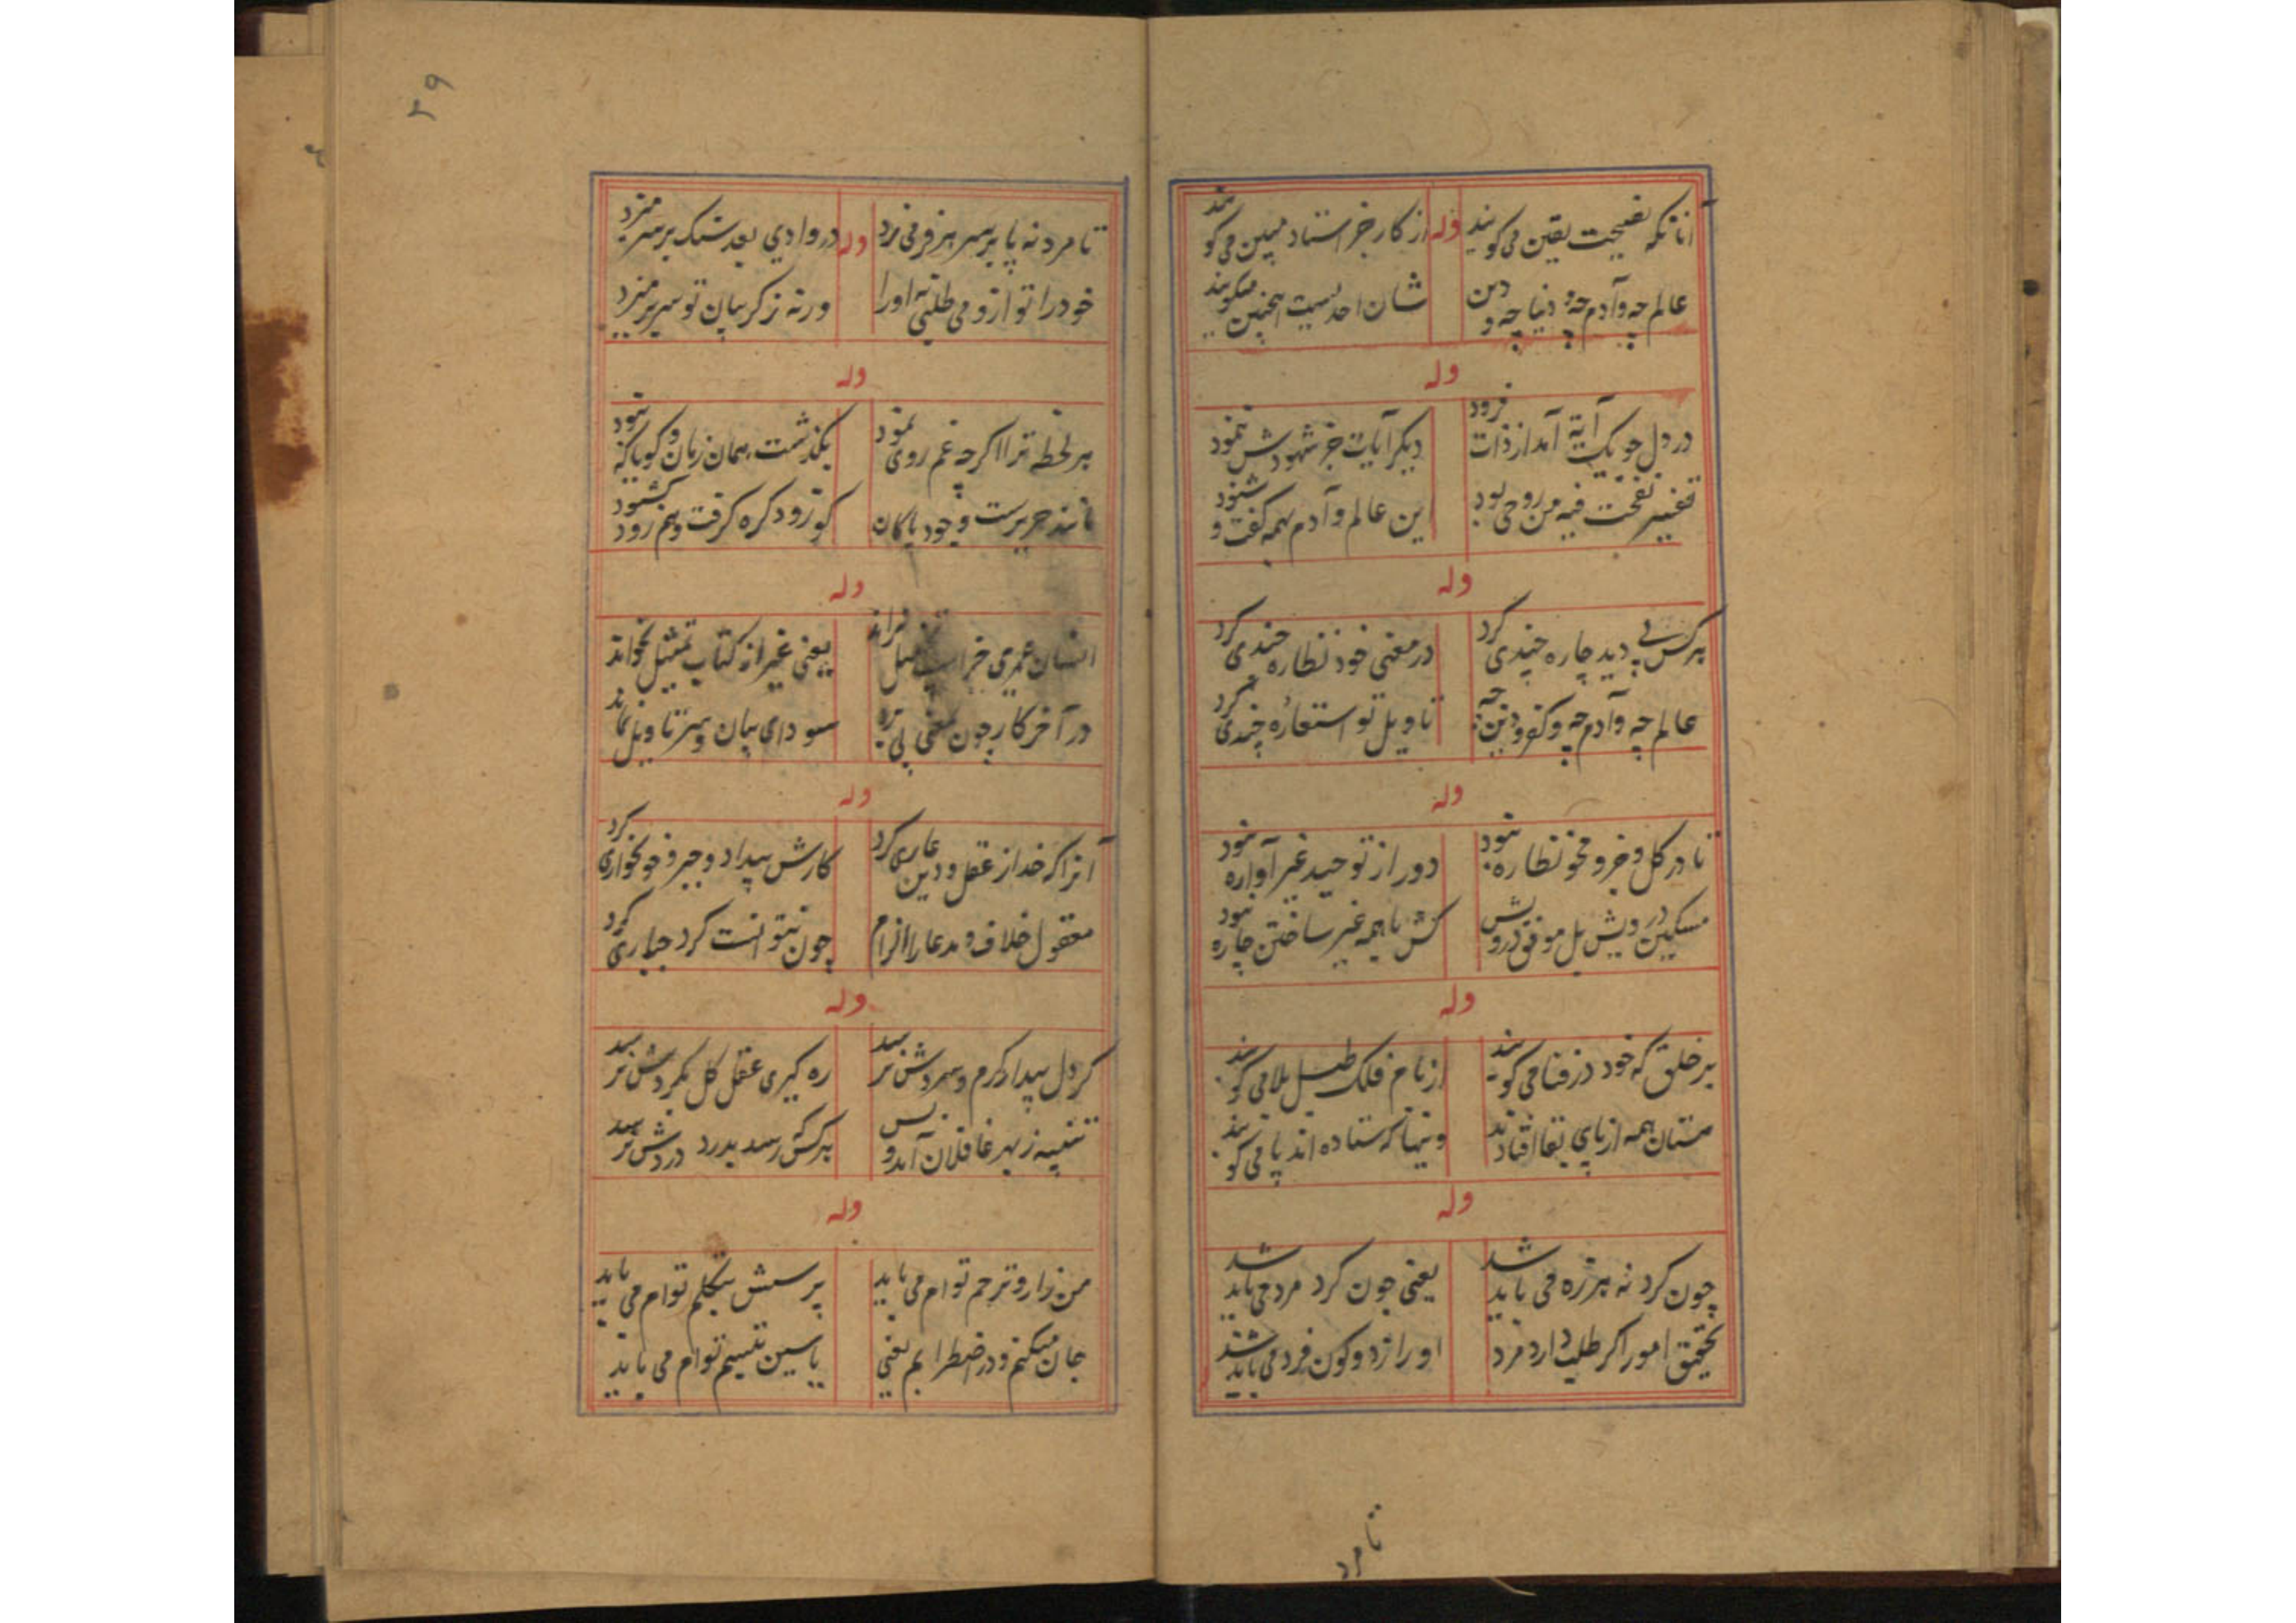 آنانکه نصیحت یقین می کویند وله از کار خر استاد مبین می کویند
عالم چه و آدم چه و دنیا چه و دین شان احدیست اینچنین میکویند
وله
در دل چو یک آیة آمد از ذات فرود دیکر آیات جز شهودش ننمود
تفسیر نفخت فیه من روحی بود این عالم و آدم همه کفت و شنود
وله
هر کس پی دید چاره چندی کرد در معنی خود نظاره چندی کرد
عالم چه و آدم چه و کفر و دین چه تاویل تو استعاره چندی کرد
وله
تا در کل و جزو محو نظاره نبود دور از توحید غیر آواره نبود
مسکین درویش بل موفق درویش کش با همه غیر ساختن چاره نبود
وله
بر خلق که خود در فنا می کویند از بام فلک طبل بلا می کویند
مستان همه از پای بقا افتادند وینها که ستاده اند پا می کویند
وله
چون کرد نه هرزه می باید شد یعنی چون کرد مرد می باید شد
تحقیق امور اکر طلب دارد مرد او را ز دو کون فرد می باید شد
تا مرد
۲۹
تا مرد نه پا بر سر هر فر می زد وله در وادی بعد سنک بر سر میزد
خود را تو ازو می طلبی نه او را ورنه ز کریبان تو سر بر میزد
وله
هر لحظه ترا اکر چه غم روی نمود بکذشت همان زمان و کویا که نبود
مانند حریرست وجود پاکان کو زود کره کرفت و هم زود کشود
وله
انسان عمری خر اسب میل براند یعنی غیر از کتاب تمثیل نخواند
در آخر کار چون معنی پی برد سودای بیان و سر تاویل نماند
وله
آنرا که خدا از عقل و دین عاری کرد کارش بیداد و جبر و خونخواری کرد
معقول خلاف مدعا را الزام چون نتوانست کرد جباری کرد
وله
کر دل بیدار کرم و سردش نرسد ره کیری عقل کل بکردش نرسد
تنبیه ز بهر غافلان آمد و بس هر کس که رسد بدرد دردش نرسد
وله
من زار و ترحم توام می باید پرسش بتکلم توام می باید
جان میکنم و در اضطرابم یعنی یاسین تبسم توام می باید